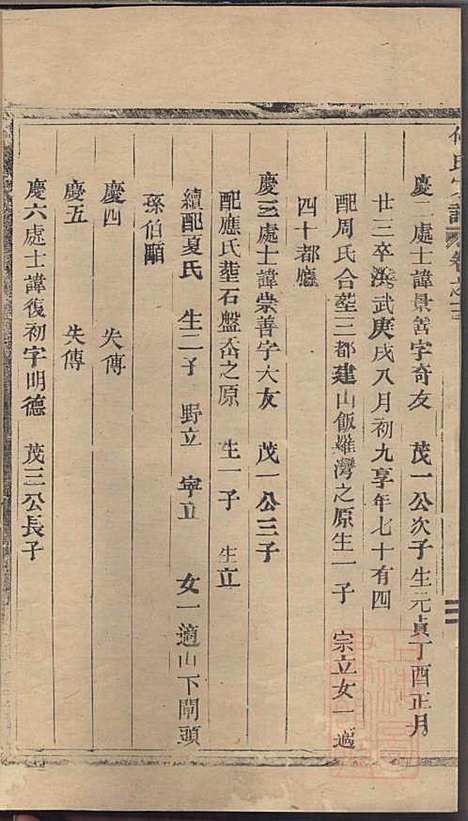 氏宗譜 卷之三
慶二處士諱景善字奇友 茂一公次子生元貞丁酉正月
廿三卒洪武庚戌八月初九享年七十有四
配周氏合塟三都建山飯羅灣之原生一子 宗立女一適
四十都廳
慶三處士諱崇善字大友 茂一公三子
配應氏塟石盤岙之原 生一子 生立
續配夏氏 生二子 野立 寕立 女一適山下閘頭
孫伯顒
慶四 失傳
慶五 失傳
慶六處士諱復初字明德 茂三公長子